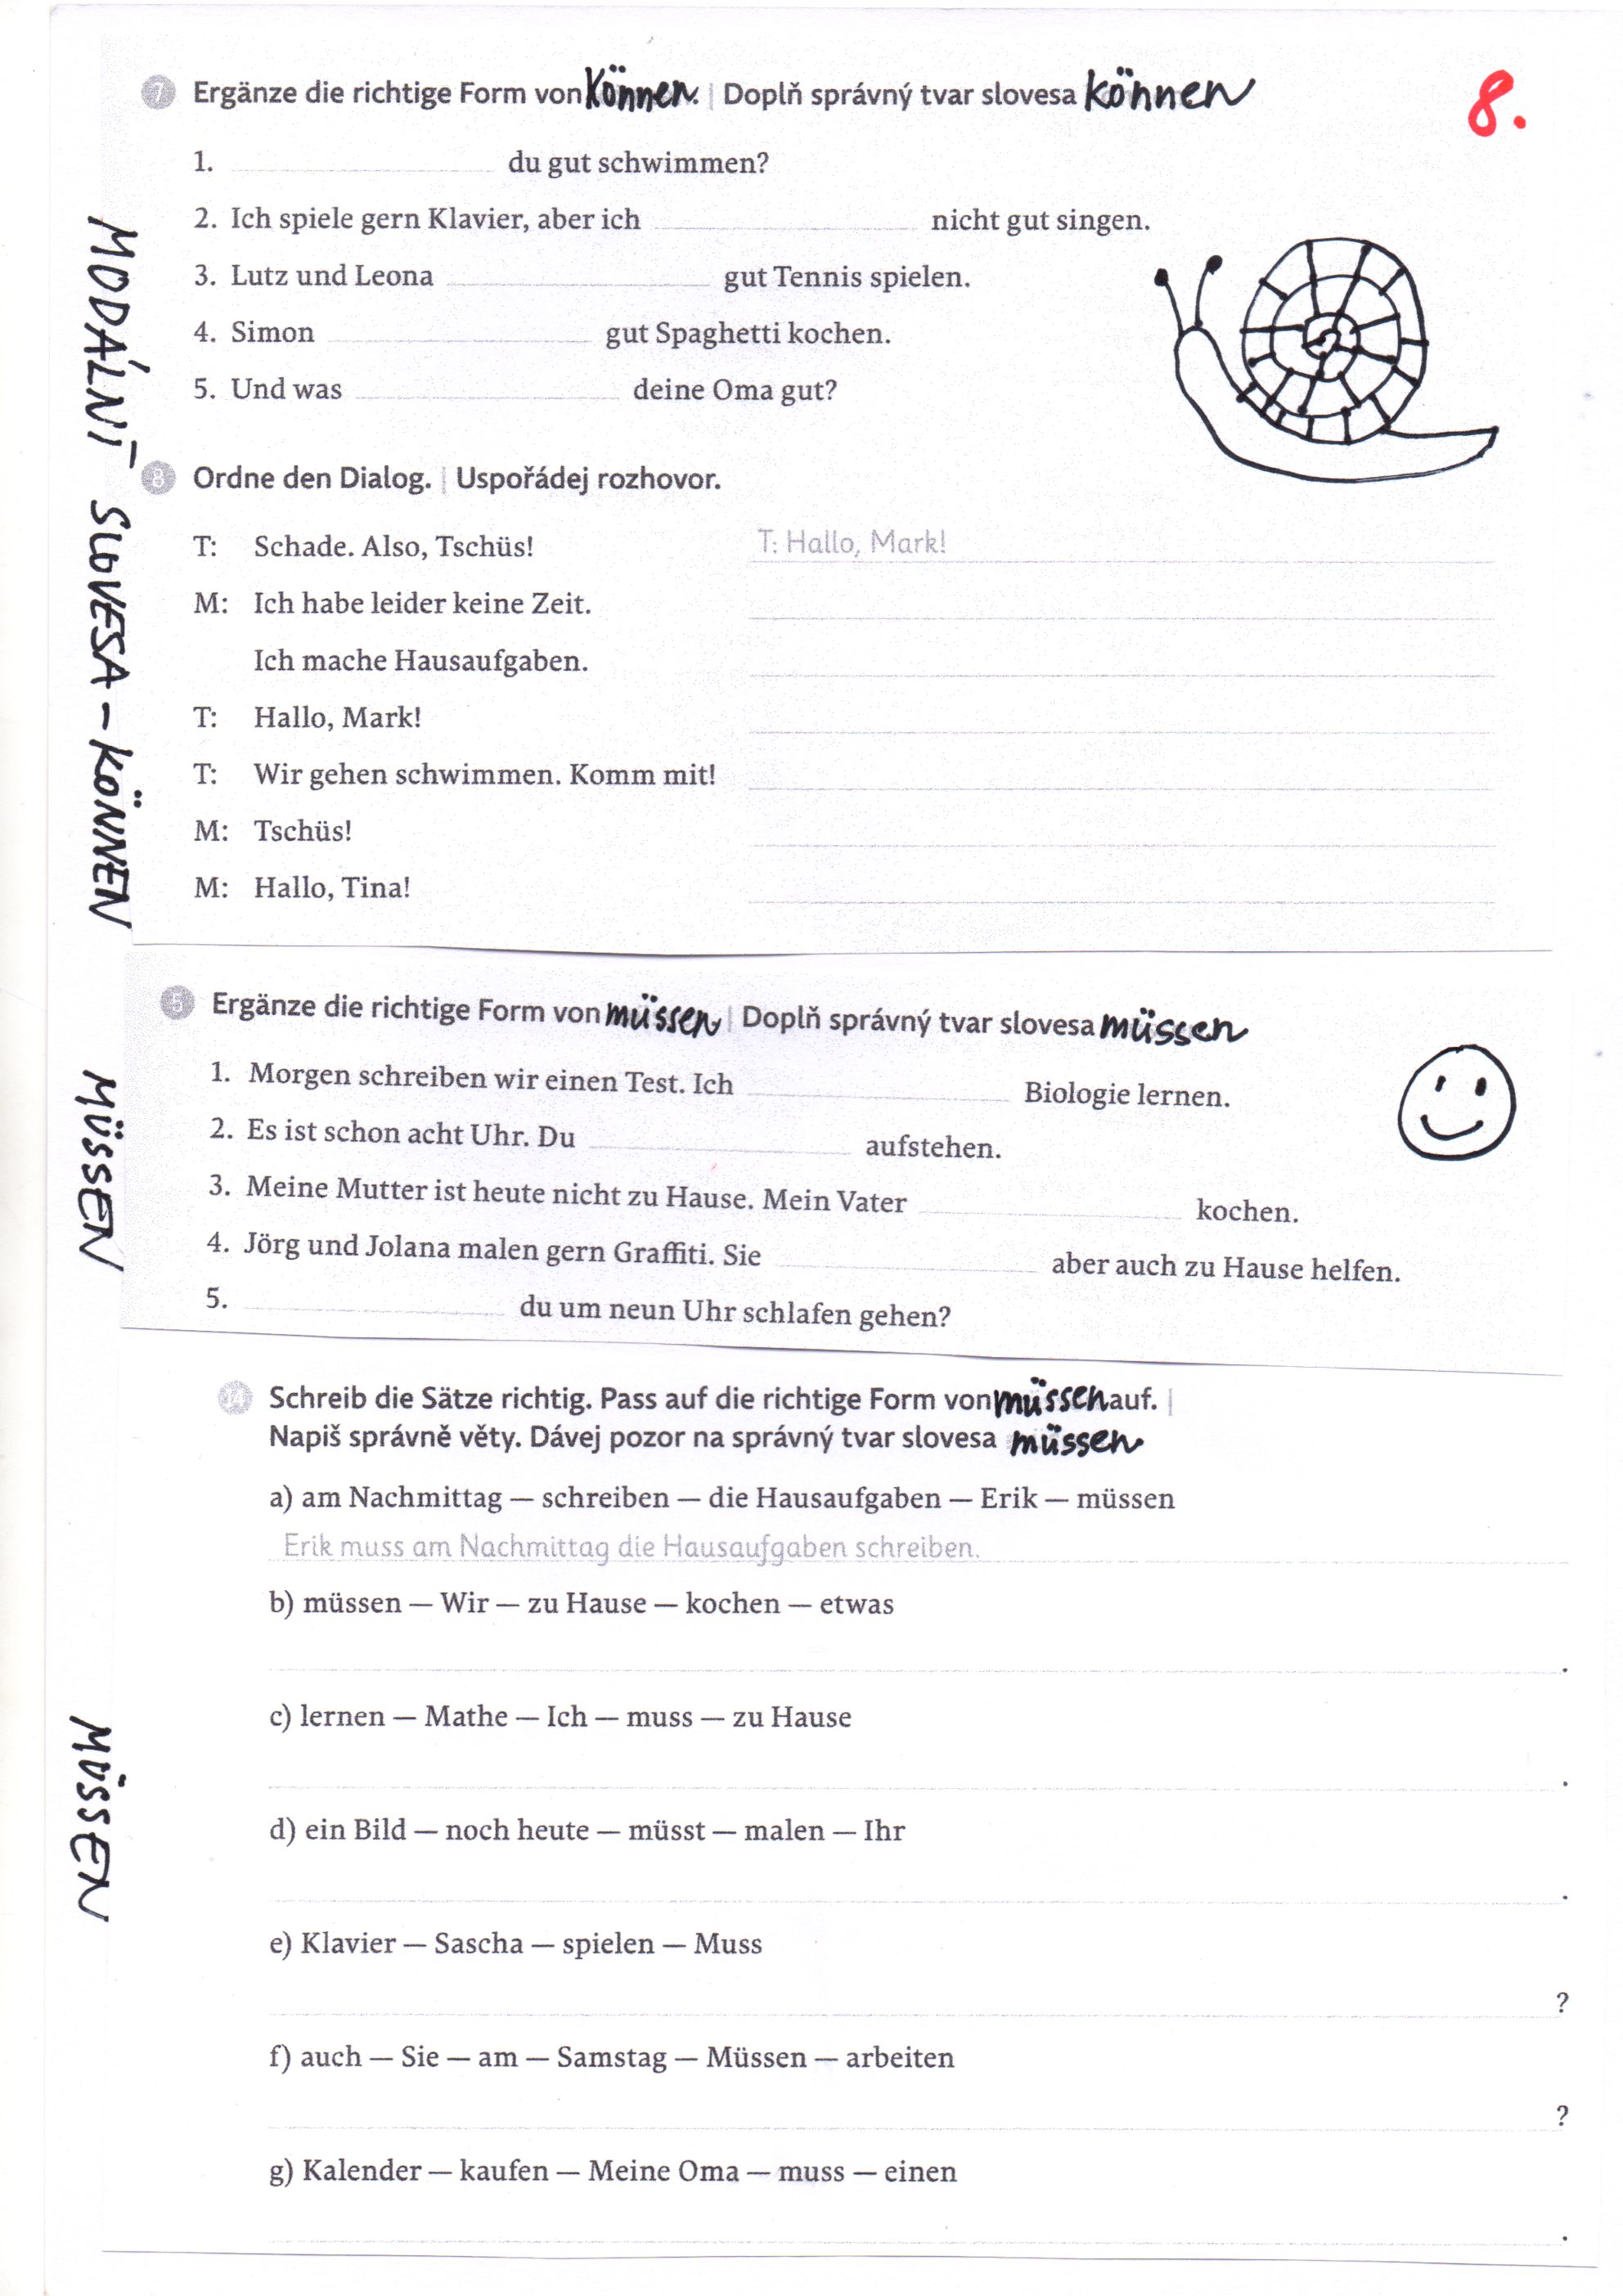 8.
7 Ergänze die richtige Form von können. | Doplň správný tvar slovesa können
1. du gut schwimmen?
2. Ich spiele gern Klavier, aber ich nicht gut singen.
3. Lutz und Leona gut Tennis spielen.
4. Simon gut Spaghetti kochen.
5. Und was deine Oma gut?
MODÁLNÍ SLOVESA – KÖNNEN
8 Ordne den Dialog. | Uspořádej rozhovor.
T: Schade. Also, Tschüs! T: Hallo, Mark!
M: Ich habe leider keine Zeit.
Ich mache Hausaufgaben.
T: Hallo, Mark!
T: Wir gehen schwimmen. Komm mit!
M: Tschüs!
M: Hallo, Tina!
MÜSSEN
5 Ergänze die richtige Form von müssen | Doplň správný tvar slovesa müssen
1. Morgen schreiben wir einen Test. Ich Biologie lernen.
2. Es ist schon acht Uhr. Du aufstehen.
3. Meine Mutter ist heute nicht zu Hause. Mein Vater kochen.
4. Jörg und Jolana malen gern Graffiti. Sie aber auch zu Hause helfen.
5. du um neun Uhr schlafen gehen?
MÜSSEN
14 Schreib die Sätze richtig. Pass auf die richtige Form von müssen auf. |
Napiš správně věty. Dávej pozor na správný tvar slovesa müssen
a) am Nachmittag — schreiben — die Hausaufgaben — Erik — müssen
Erik muss am Nachmittag die Hausaufgaben schreiben.
b) müssen — Wir — zu Hause — kochen — etwas
.
c) lernen — Mathe — Ich — muss — zu Hause
.
d) ein Bild — noch heute — müsst — malen — Ihr
.
e) Klavier — Sascha — spielen — Muss
?
f) auch — Sie — am — Samstag — Müssen — arbeiten
?
g) Kalender — kaufen — Meine Oma — muss — einen
.